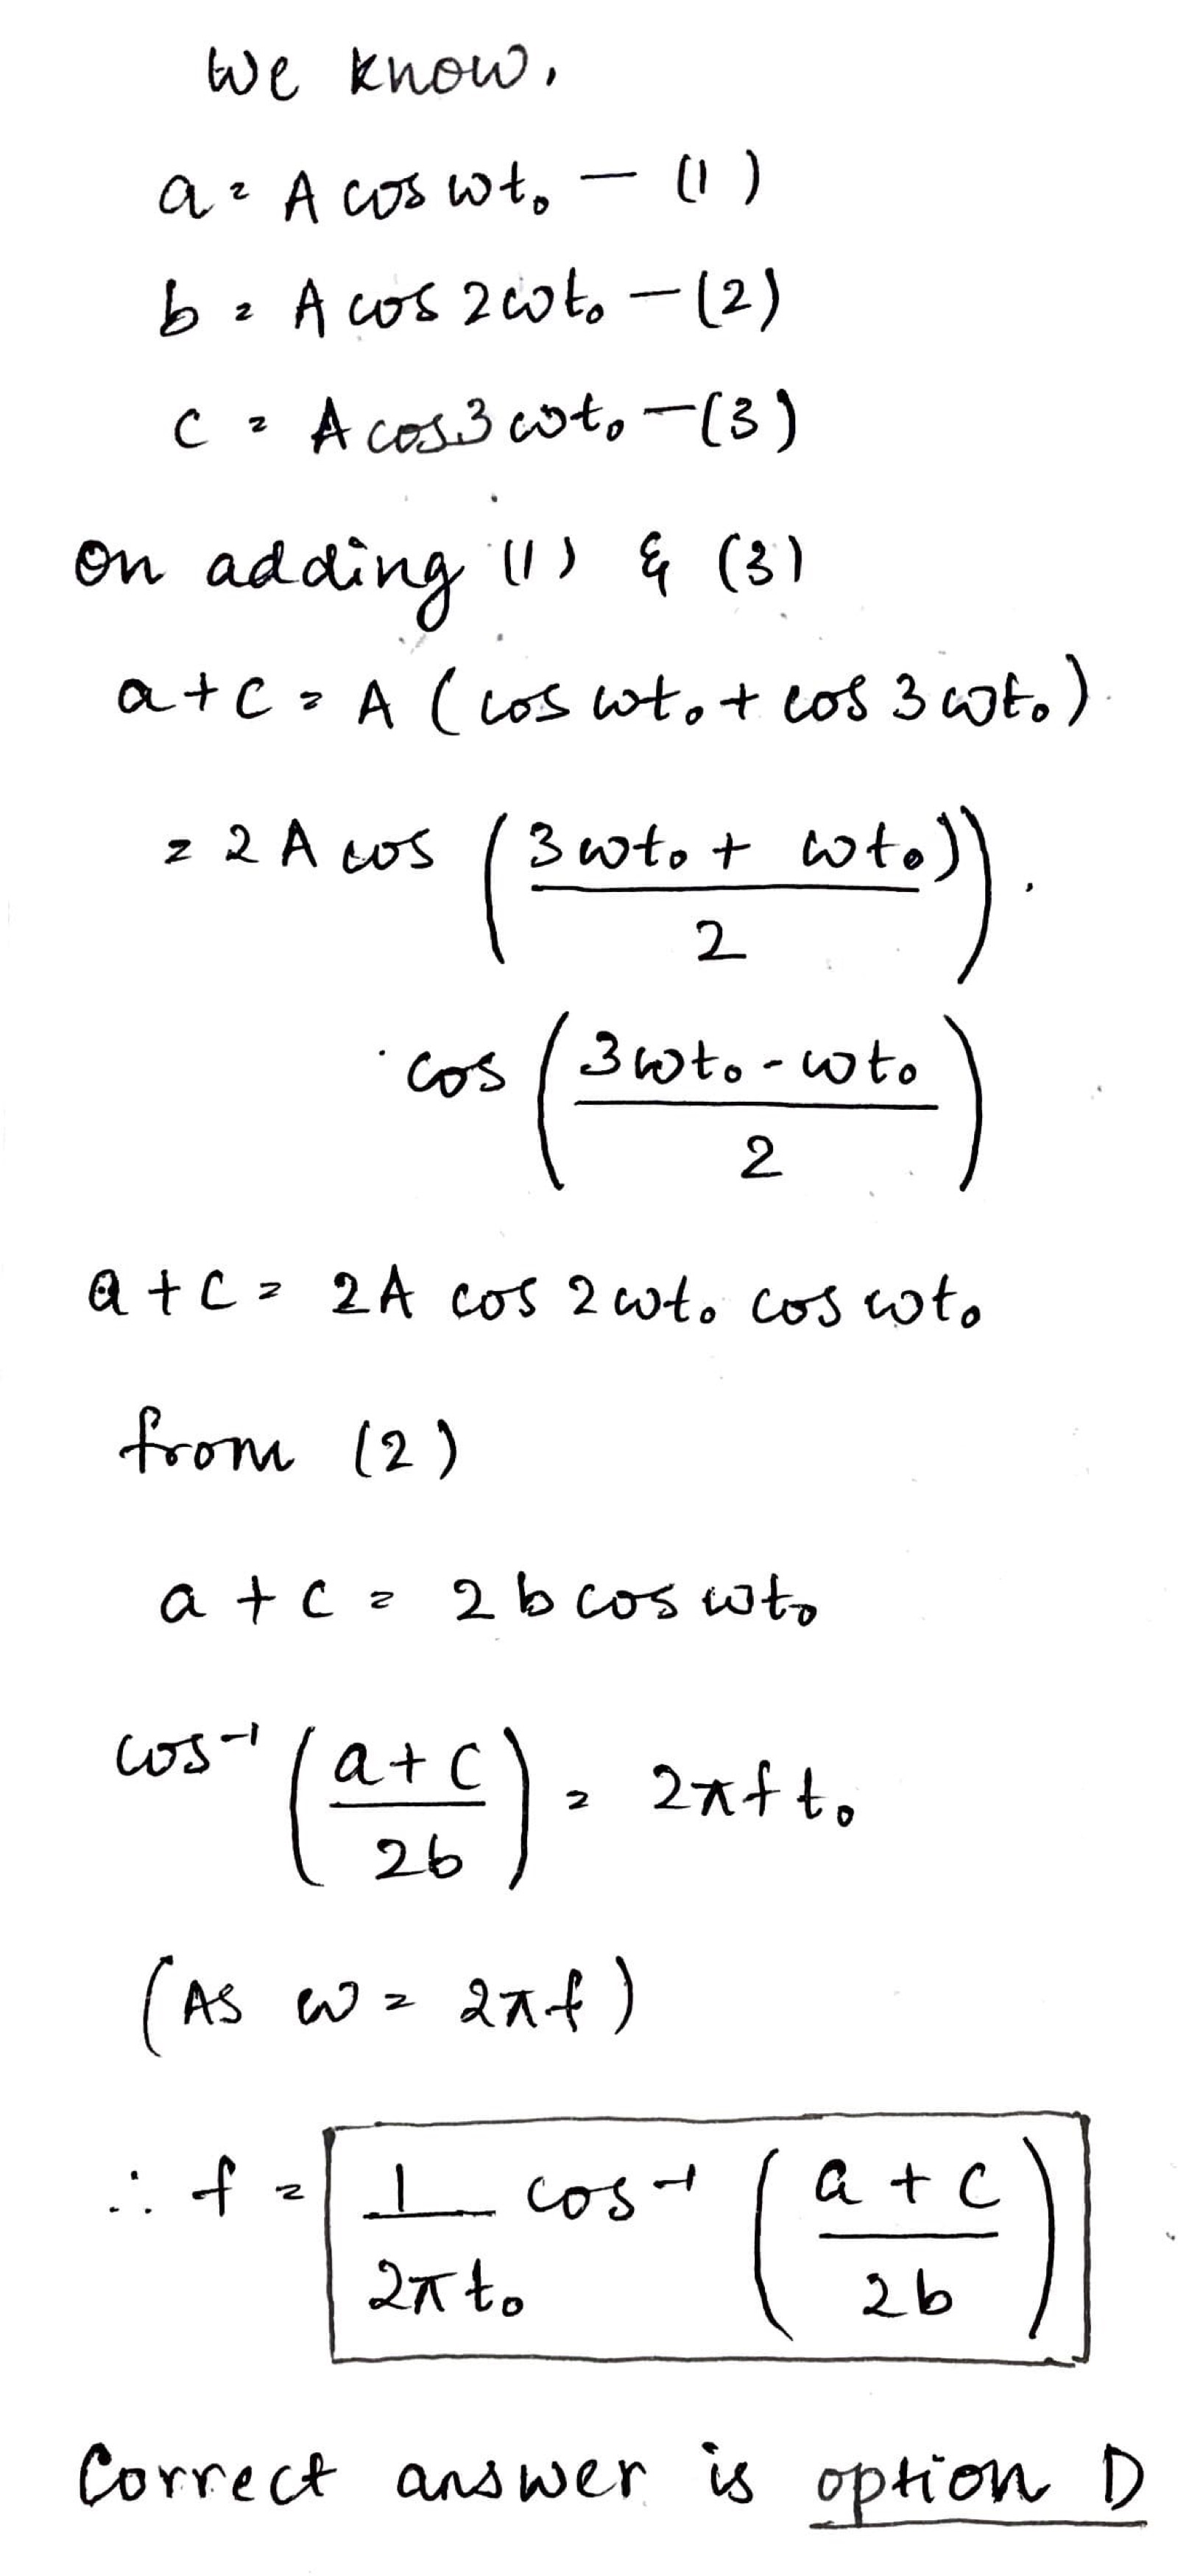 We know,
a = A cos ωt₀ — (1)
b = A cos 2ωt₀ — (2)
c = A cos 3ωt₀ — (3)
On adding (1) & (3)
a + c = A (cos ωt₀ + cos 3ωt₀)
= 2A cos ( (3ωt₀ + ωt₀)) / 2 ) .
· cos ( (3ωt₀ - ωt₀) / 2 )
a + c = 2A cos 2ωt₀ cos ωt₀
from (2)
a + c = 2b cos ωt₀
cos⁻¹ ( (a + c) / 2b ) = 2πft₀
(As ω = 2πf)
∴ f = 1 / 2πt₀ cos⁻¹ ( (a + c) / 2b )
Correct answer is option D